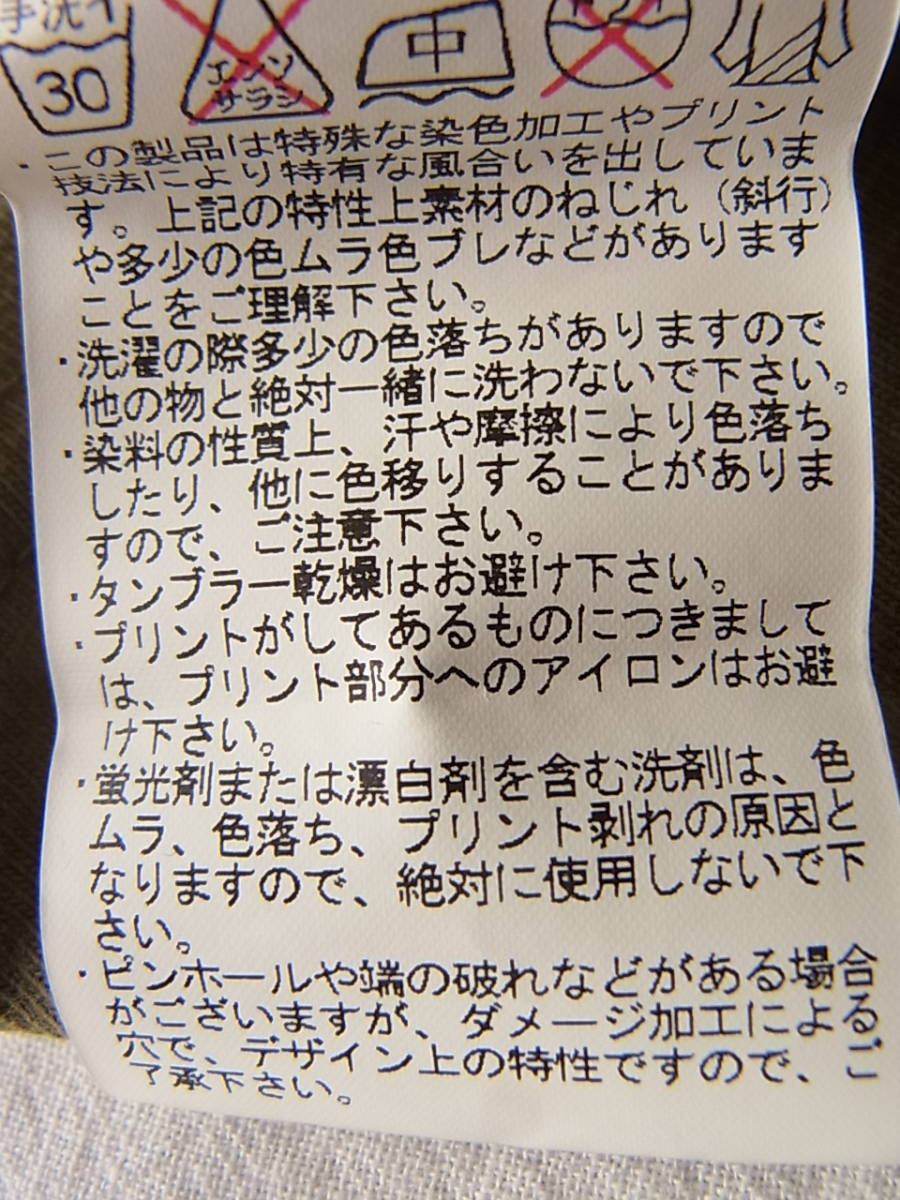 手洗イ
30
エンソ
サラシ
中
・この製品は特殊な染色加工やプリント
技法により特有な風合いを出していま
す。上記の特性上素材のねじれ（斜行）
や多少の色ムラ色ブレなどがあります
ことをご理解下さい。
・洗濯の際多少の色落ちがありますので
他の物と絶対一緒に洗わないで下さい。
・染料の性質上、汗や摩擦により色落ち
したり、他に色移りすることがありま
すので、ご注意下さい。
・タンブラー乾燥はお避け下さい。
・プリントがしてあるものにつきまして
は、プリント部分へのアイロンはお避
け下さい。
・蛍光剤または漂白剤を含む洗剤は、色
ムラ、色落ち、プリント剥れの原因と
なりますので、絶対に使用しないで下
さい。
・ピンホールや端の破れなどがある場合
がございますが、ダメージ加工による
穴で、デザイン上の特性ですので、ご
了承下さい。